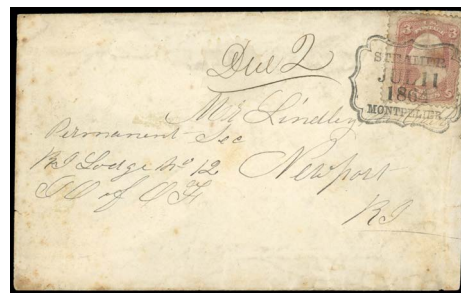 3 3
Due 2
STEAMER
JUL 11
1864
MONTPELIER
Mr Lindley
Permanent Sec
RI Lodge No 12
IO of OF
Newport
RI